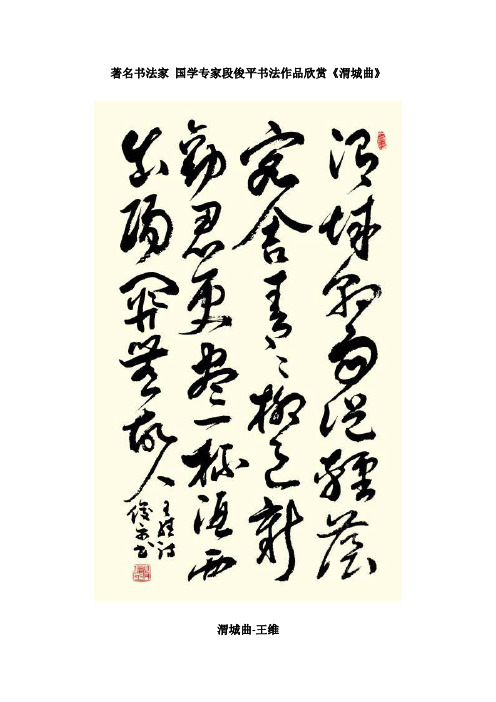 著名书法家 国学专家段俊平书法作品欣赏《渭城曲》
渭城朝雨浥輕塵
客舍青々柳色新
勸君更盡一杯酒西
出陽關無故人
王維詩
俊平书
渭城曲-王维